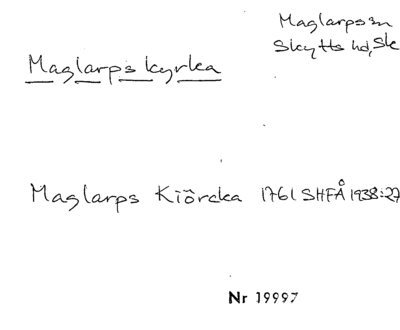 Maglarps sn
Skytts hd, Sk
Maglarps kyrka
Maglarps Kiörcka 1761 SHFÅ 1938:27
Nr 19997